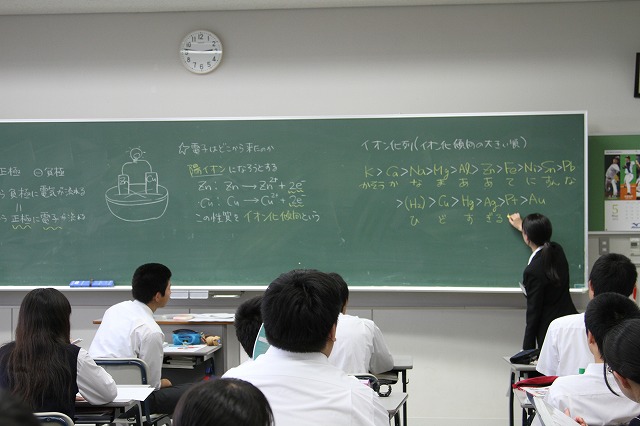 正極 ⊖負極
ら 負極に電気が流れる
ら 正極に電子が流る
☆電子はどこから来たのか
陽イオンになろうとする
Zn: Zn → Zn²⁺ + 2e⁻
Cu: Cu → Cu²⁺ + 2e⁻
この性質をイオン化傾向という
イオン化列(イオン化傾向の大きい順)
K>Ca>Na>Mg>Al>Zn>Fe>Ni>Sn>Pb
かそうか な ま あ あ て に すん な
>(H₂)>Cu>Hg>Ag>Pt>Au
ひ ど すぎる
5